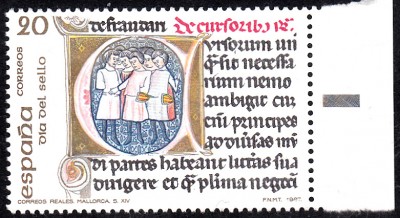 20
CORREOS
España
Día del Sello
defraudari De cursoribus
Ursorum mi
qsit necessa
rium nemo
ambigit cu
principes
ad divisas
di partes habeant litteras sua
dirigere et plima negoci
CORREOS REALES. MALLORCA. S. XIV
F.N.M.T. 1987